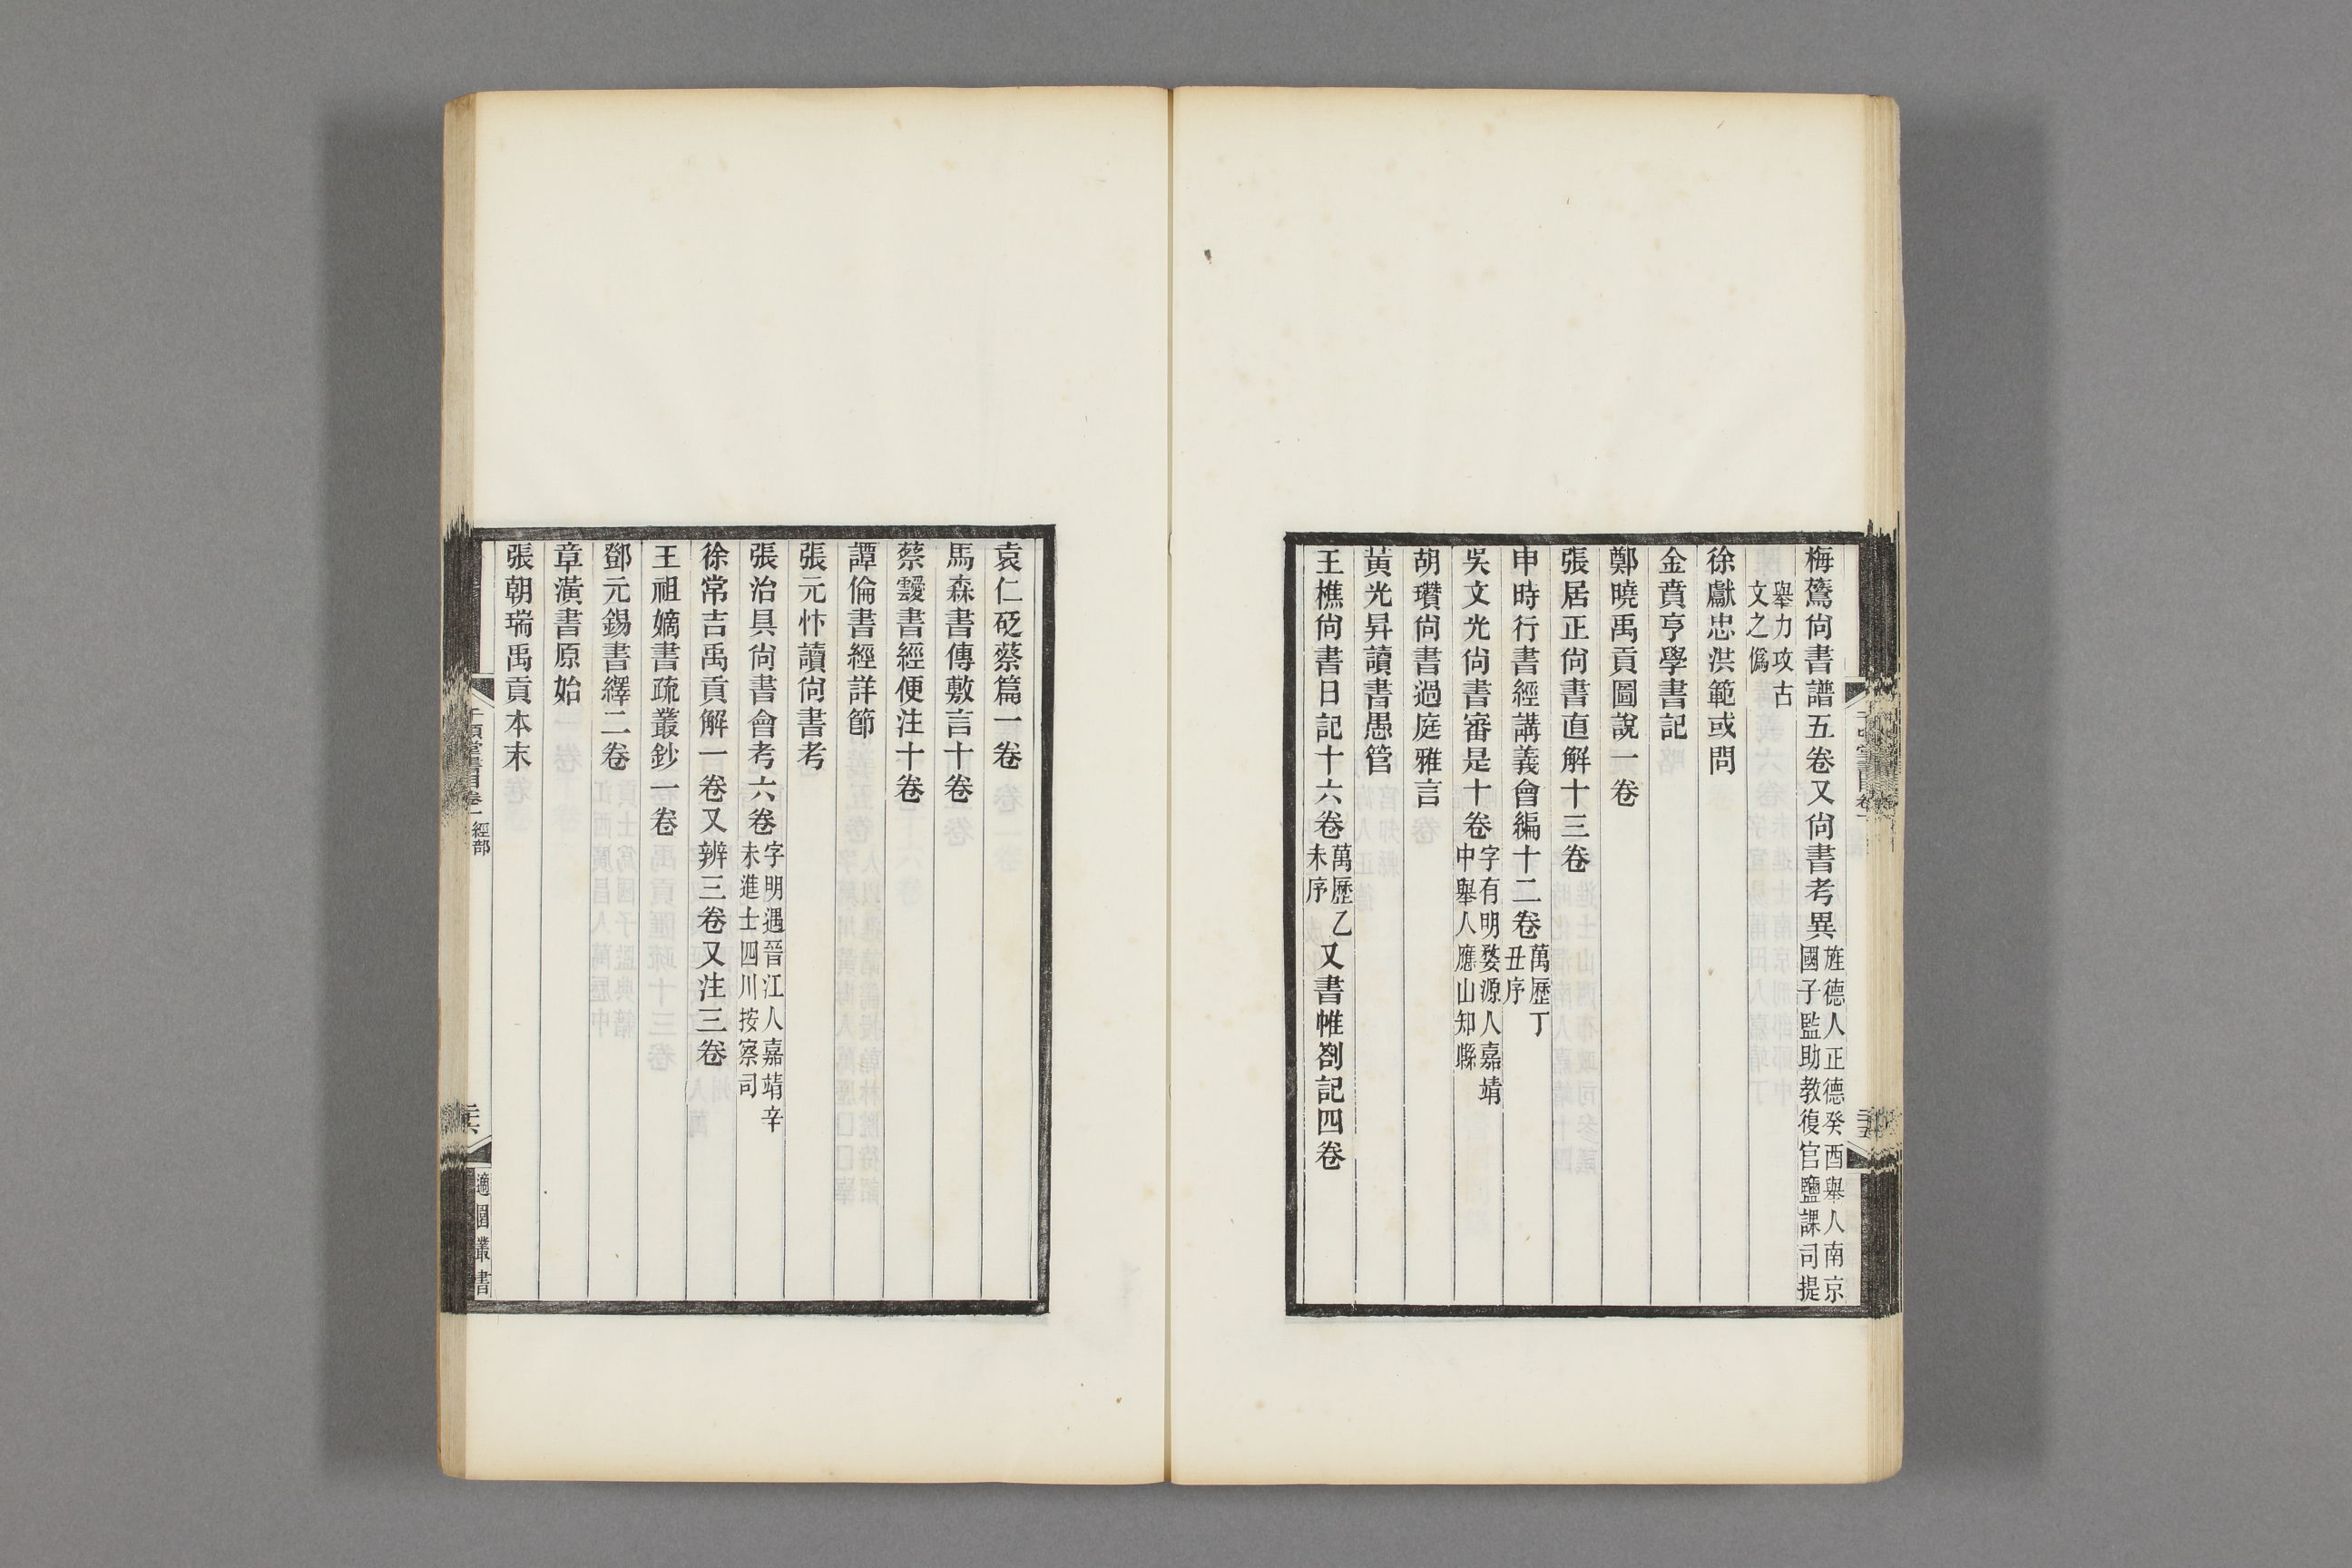 梅鷟尚書譜五卷又尚書考異旌德人正德癸酉舉人南京國子監助教復官鹽課司提
舉力攻古文之僞
徐獻忠洪範或問
金賁亨學書記
鄭曉禹貢圖說一卷
張居正尚書直解十三卷
申時行書經講義會編十二卷萬歷丁丑序
吳文光尚書審是十卷字有明婺源人嘉靖中舉人應山知縣
胡瓚尚書過庭雅言
黃光昇讀書愚管
王樵尚書日記十六卷萬歷乙未序又書帷劄記四卷
袁仁砭蔡篇一卷
馬森書傳敷言十卷
蔡靉書經便注十卷
譚倫書經詳節
張元忭讀尚書考
張治具尚書會考六卷字明遇晉江人嘉靖辛未進士四川按察司
徐常吉禹貢解一卷又辨三卷又注三卷
王祖嫡書疏叢鈔一卷
鄧元錫書繹二卷
章潢書原始
張朝瑞禹貢本末
千頃堂書目卷一 經部
二十六
適園叢書